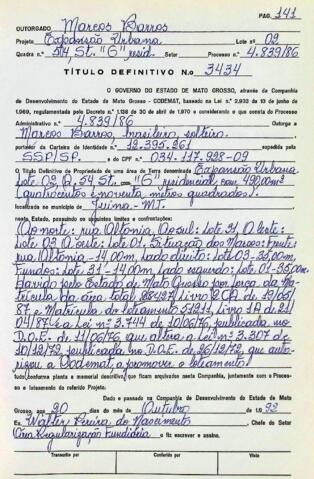 PAG. 141
OUTORGADO Marcos Barros
Projeto Expansão Urbana Lote nº 02
Quadra n.º 54, St. "G" resid. Setor Processo n.º 4.839/86
TÍTULO DEFINITIVO N.o 3434
O GOVERNO DO ESTADO DE MATO GROSSO, através da Companhia
de Desenvolvimento do Estado de Mato Grosso - CODEMAT, com base na Lei n.º 2.933 de 13 de junho de
1969, regulamentada pelo Decreto n.º 1.138 de 30 de abril de 1970 e considerando o que consta do Processo
Administrativo n.º 4.839/86 Outorga a
Marcos Barros, brasileiro, solteiro,
portador da Carteira de Identidade n.º 12.395.261 expedida pela
SSP/SP. e do CPF n.º 034.117.928-09
O Título Definitivo de Propriedade de uma área de Terra denominada Expansão Urbana
Lote 02, Q. 54 St. "G" residencial, com 490,00m²
(quatrocentos e noventa metros quadrados).
localizada no município de Juína-MT.
neste Estado, possuindo os seguintes limites e confrontações:
Ao norte: rua Altônia, Ao sul: Lote 31, A leste:
Lote 03, A oeste: Lote 01. Situação dos Marcos: Frente:
rua Altônia - 14,00m, Lado direito: Lote 03-35,00m,
Fundos: Lote 31 - 14,00m, Lado esquerdo: Lote 01-35,00m.
Havido pelo Estado de Mato Grosso por força da Ma-
trícula da área total Livro 2
87 e Matrícula do loteamento Livro 1A de 21/
04/87 e a Lei nº 3.744 de 10/06/76, publicada no
D.O.E. de 11/06/76, que altera a Lei nº 3.307 de
10/12/72, publicada no D.O.E. de 26/12/72, que auto-
rizou a Codemat a promover o loteamento.
tudo conforme planta e memorial descritivo, que ficam arquivados nesta Companhia, juntamente com o Proces-
so e loteamento do referido Projeto.
Dado e passado na Companhia de Desenvolvimento do Estado de Mato
Grosso, aos 20 dias do mês de Outubro de 1.992
Eu, Walter Pereira do Nascimento, Chefe do Setor
Regularização Fundiária o fiz escrever e assino.
Transcrito por Conferido por Visto